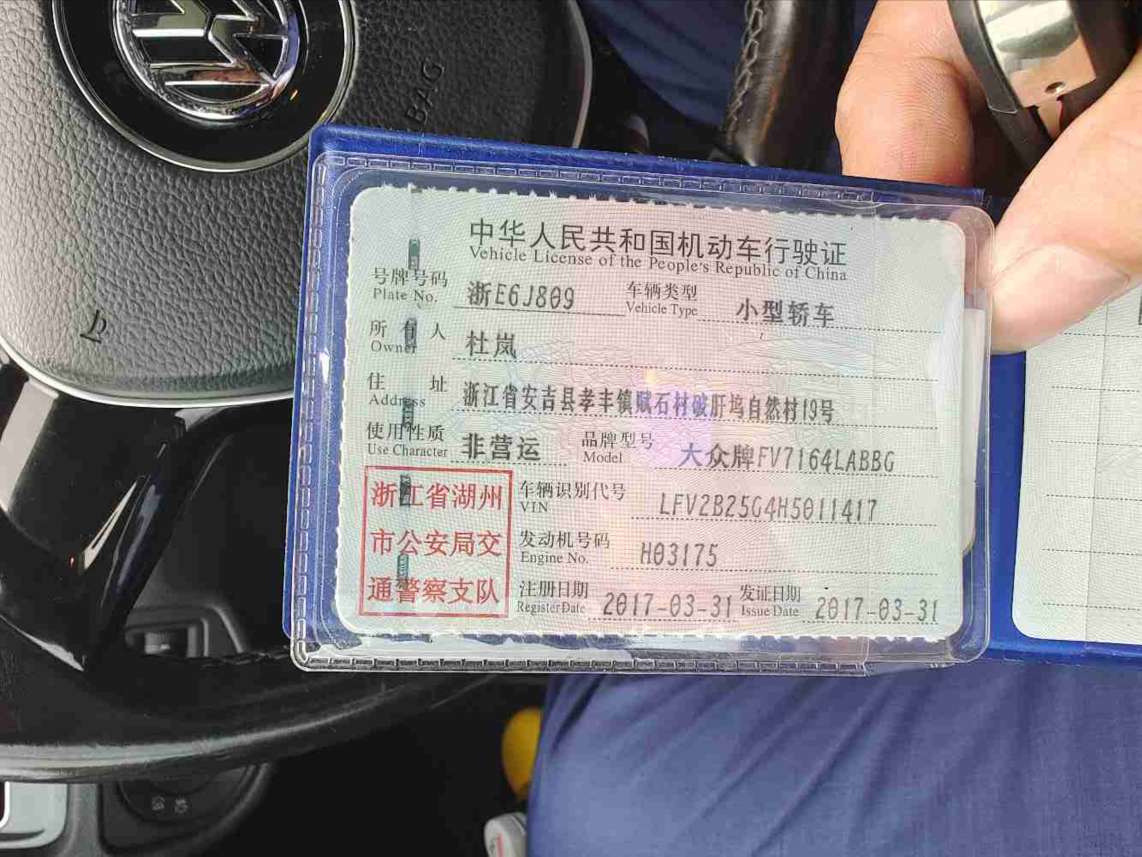 BAG
中华人民共和国机动车行驶证
Vehicle License of the People's Republic of China
号牌号码 浙E6J809 车辆类型 小型轿车
Plate No. Vehicle Type
所有人 杜岚
Owner
住址 浙江省安吉县孝丰镇赋石村破肝坞自然村19号
Address
使用性质 非营运 品牌型号 大众牌FV7164LABBG
Use Character Model
浙江省湖州
市公安局交
通警察支队
车辆识别代号 LFV2B25G4H5011417
VIN
发动机号码 H03175
Engine No.
注册日期 2017-03-31 发证日期 2017-03-31
Register Date Issue Date